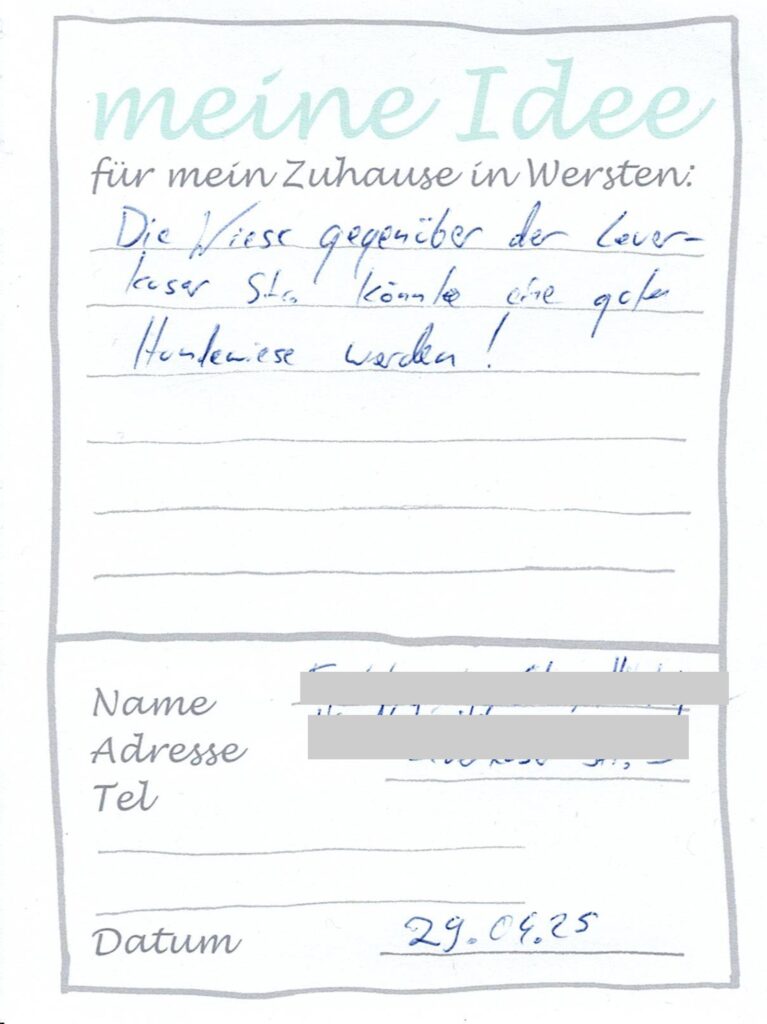 meine Idee
für mein Zuhause in Wersten:
Die Wiese gegenüber der Lever-
kuser Str. könnte eine gute
Hundewiese werden!
Name
Adresse
Tel
Datum 29.04.25